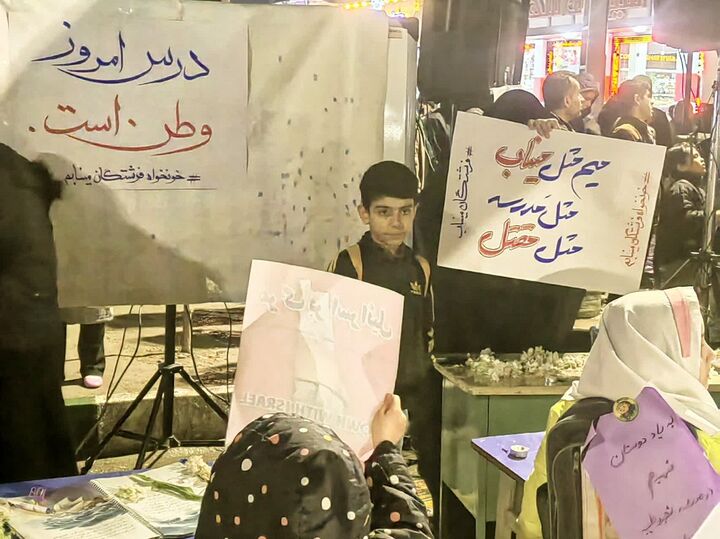 درس امروز
وطن است.
#خونخواه فرشتگان مینابم
میم مثل میناب
مثل مدرسه
مثل مقتل
#فرشتگان میناب
#خونخواه فرشتگان مینابم
مرگ بر اسرائیل
DOWN WITH ISRAEL
به یاد دوستان
شهیدم
در مدرسه